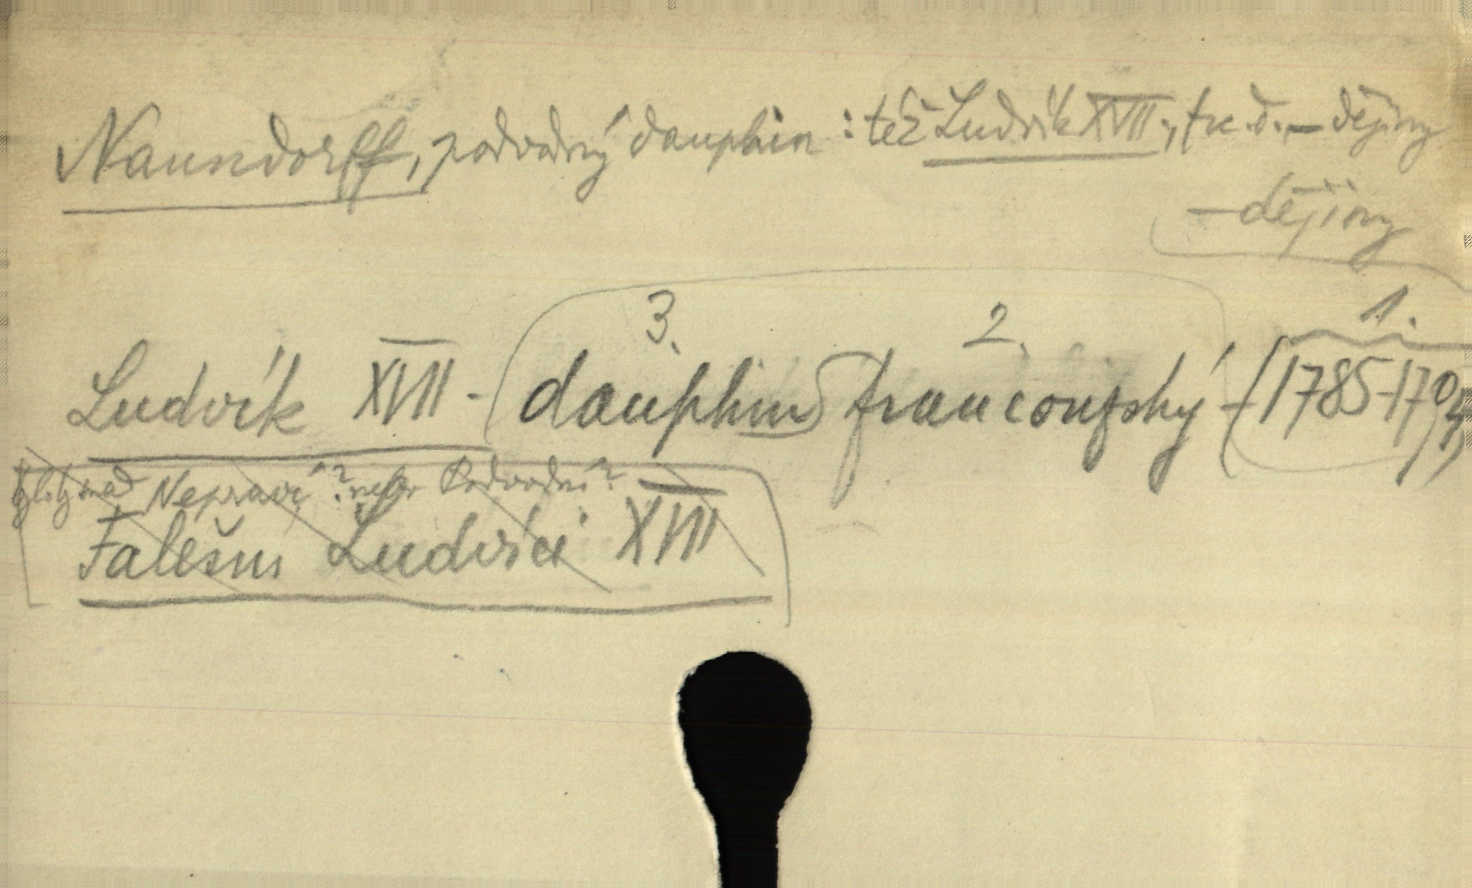 Naundorff, podvodný dauphin : též Ludvík XVII., fr. d. – dějiny
– dějiny
3. 2. 1.
Ludvík XVII - dauphin francouzský - (1785-179
Nepraví? nebo Podvodní?
Falešní Ludvíci XVII